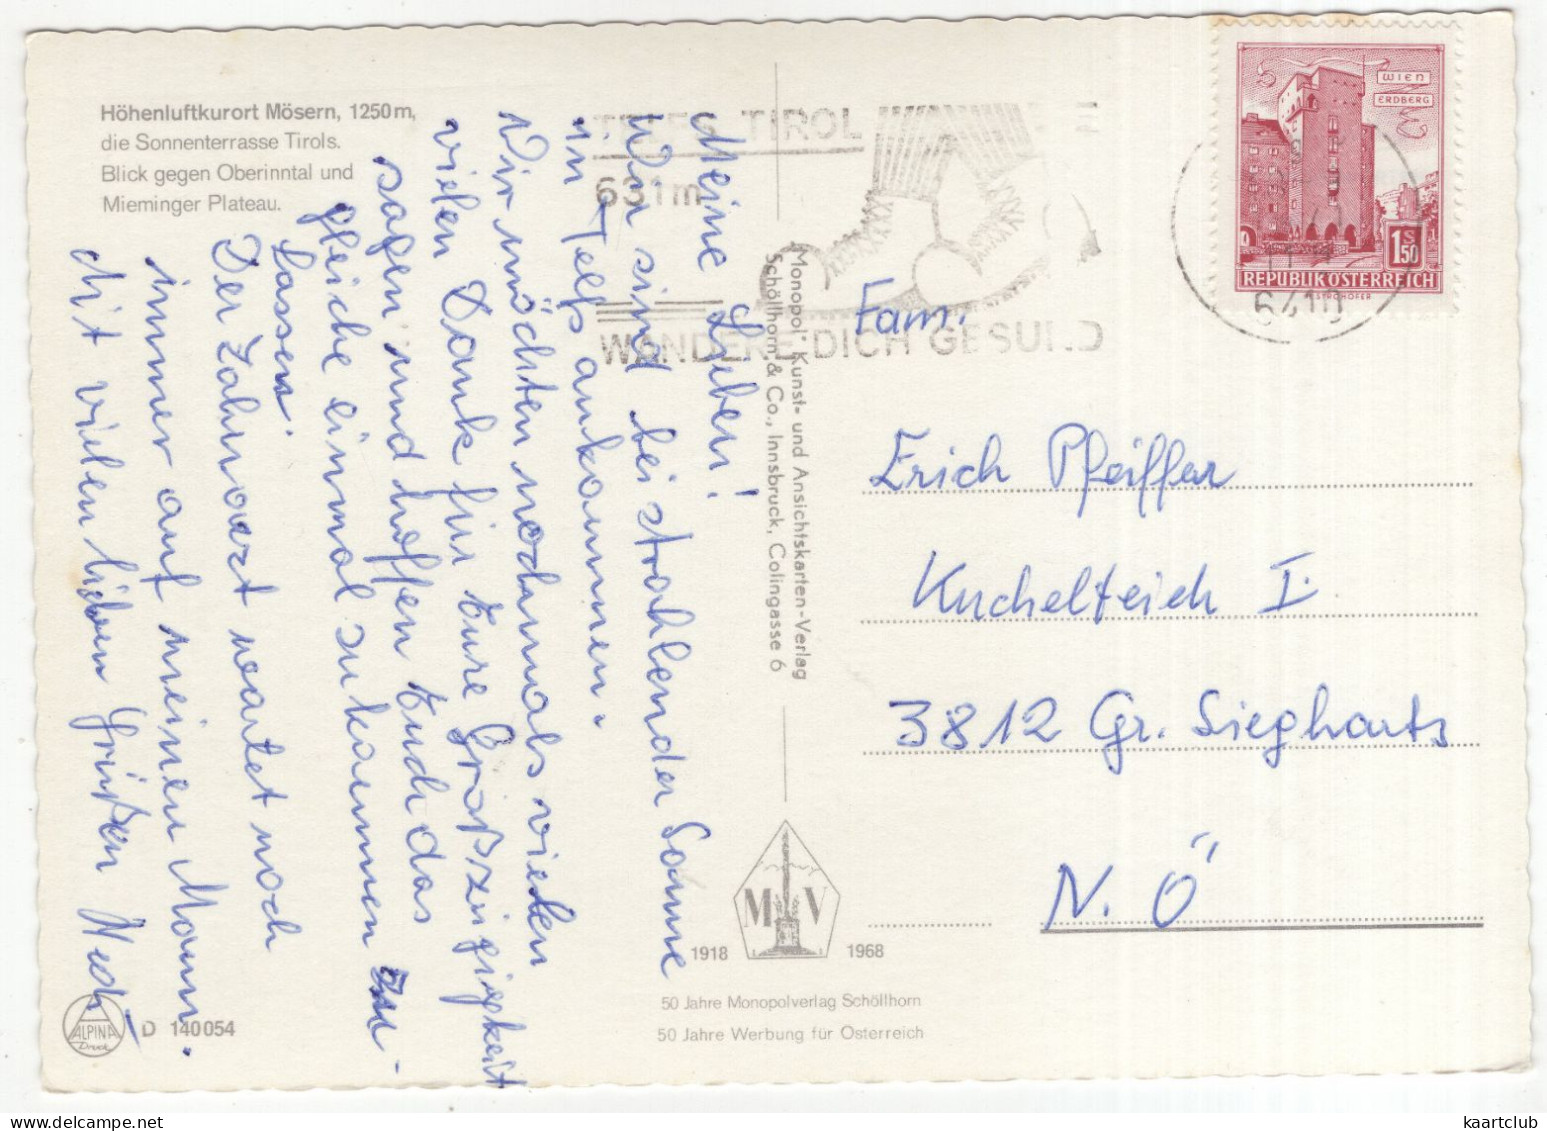 Höhenluftkurort Mösern, 1250 m,
die Sonnenterrasse Tirols.
Blick gegen Oberinntal und
Mieminger Plateau.
Meine Lieben!
Wir sind bei strahlender Sonne
in Telfs ankommen.
Wir möchten nochmals vielen
vielen Dank für Eure Großzügigkeit
sagen und hoffen Euch das
gleiche einmal zukommen zu
lassen.
Der Zahnarzt wartet noch
immer auf meinen Mann.
Mit vielen lieben Grüßen
TELFS TIROL
631m
WANDERE DICH GESUND
6410
WIEN
ERDBERG
1S50
REPUBLIK ÖSTERREICH
„Monopol" Kunst- und Ansichtskarten-Verlag
Schöllhorn & Co., Innsbruck, Colingasse 6
Fam.
Erich Pfeiffer
Kuchelteich I.
3812 Gr. Siegharts
N.Ö
M V
1918 1968
50 Jahre Monopolverlag Schöllhorn
50 Jahre Werbung für Österreich
ALPINA
Druck
D 140 054
kaartclub